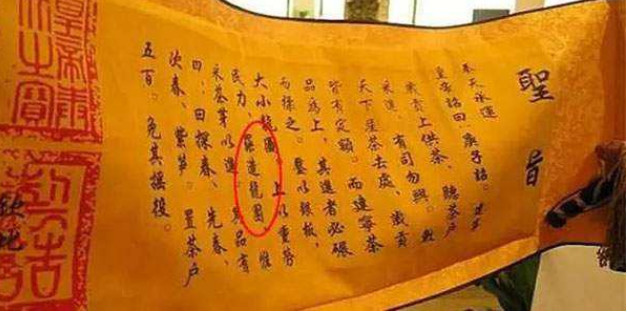 聖旨
奉天承運
皇帝詔曰。庚子詔。建
歲貢上供茶。聽茶戶
采進。有司勿與。敕
天下產茶去處。歲貢
皆有定額。而建寧茶
品爲上。其進者必碾
而揉之。壓以銀板，
大小龍團。上以重勞
民力，罷造龍團。惟
采茶芽以進。其品有
四：曰探春、先春、
次春、紫笋。置茶戶
五百。免其徭役。
欽此